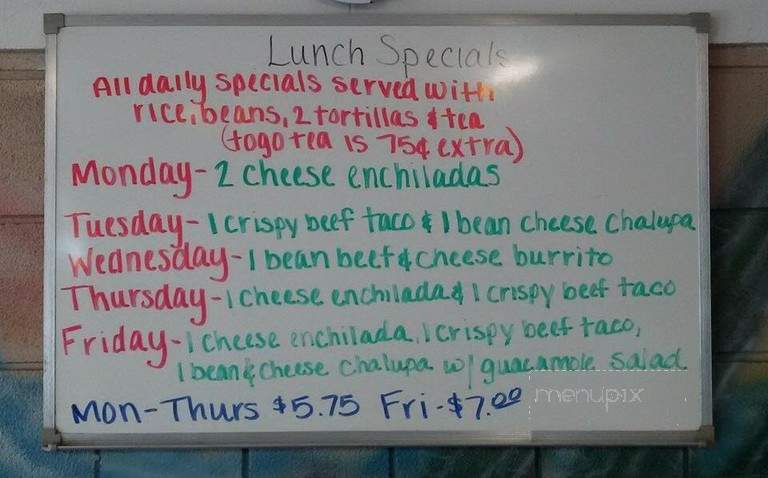 Lunch Specials
All daily specials served with
rice, beans, 2 tortillas & tea
(togo tea is 75¢ extra)
Monday- 2 cheese enchiladas
Tuesday- 1 crispy beef taco & 1 bean cheese chalupa
Wednesday- 1 bean beef & cheese burrito
Thursday- 1 cheese enchilada & 1 crispy beef taco
Friday- 1 cheese enchilada, 1 crispy beef taco,
1 bean & cheese chalupa w/ guacamole salad
Mon-Thurs $5.75 Fri-$7.00
menupix